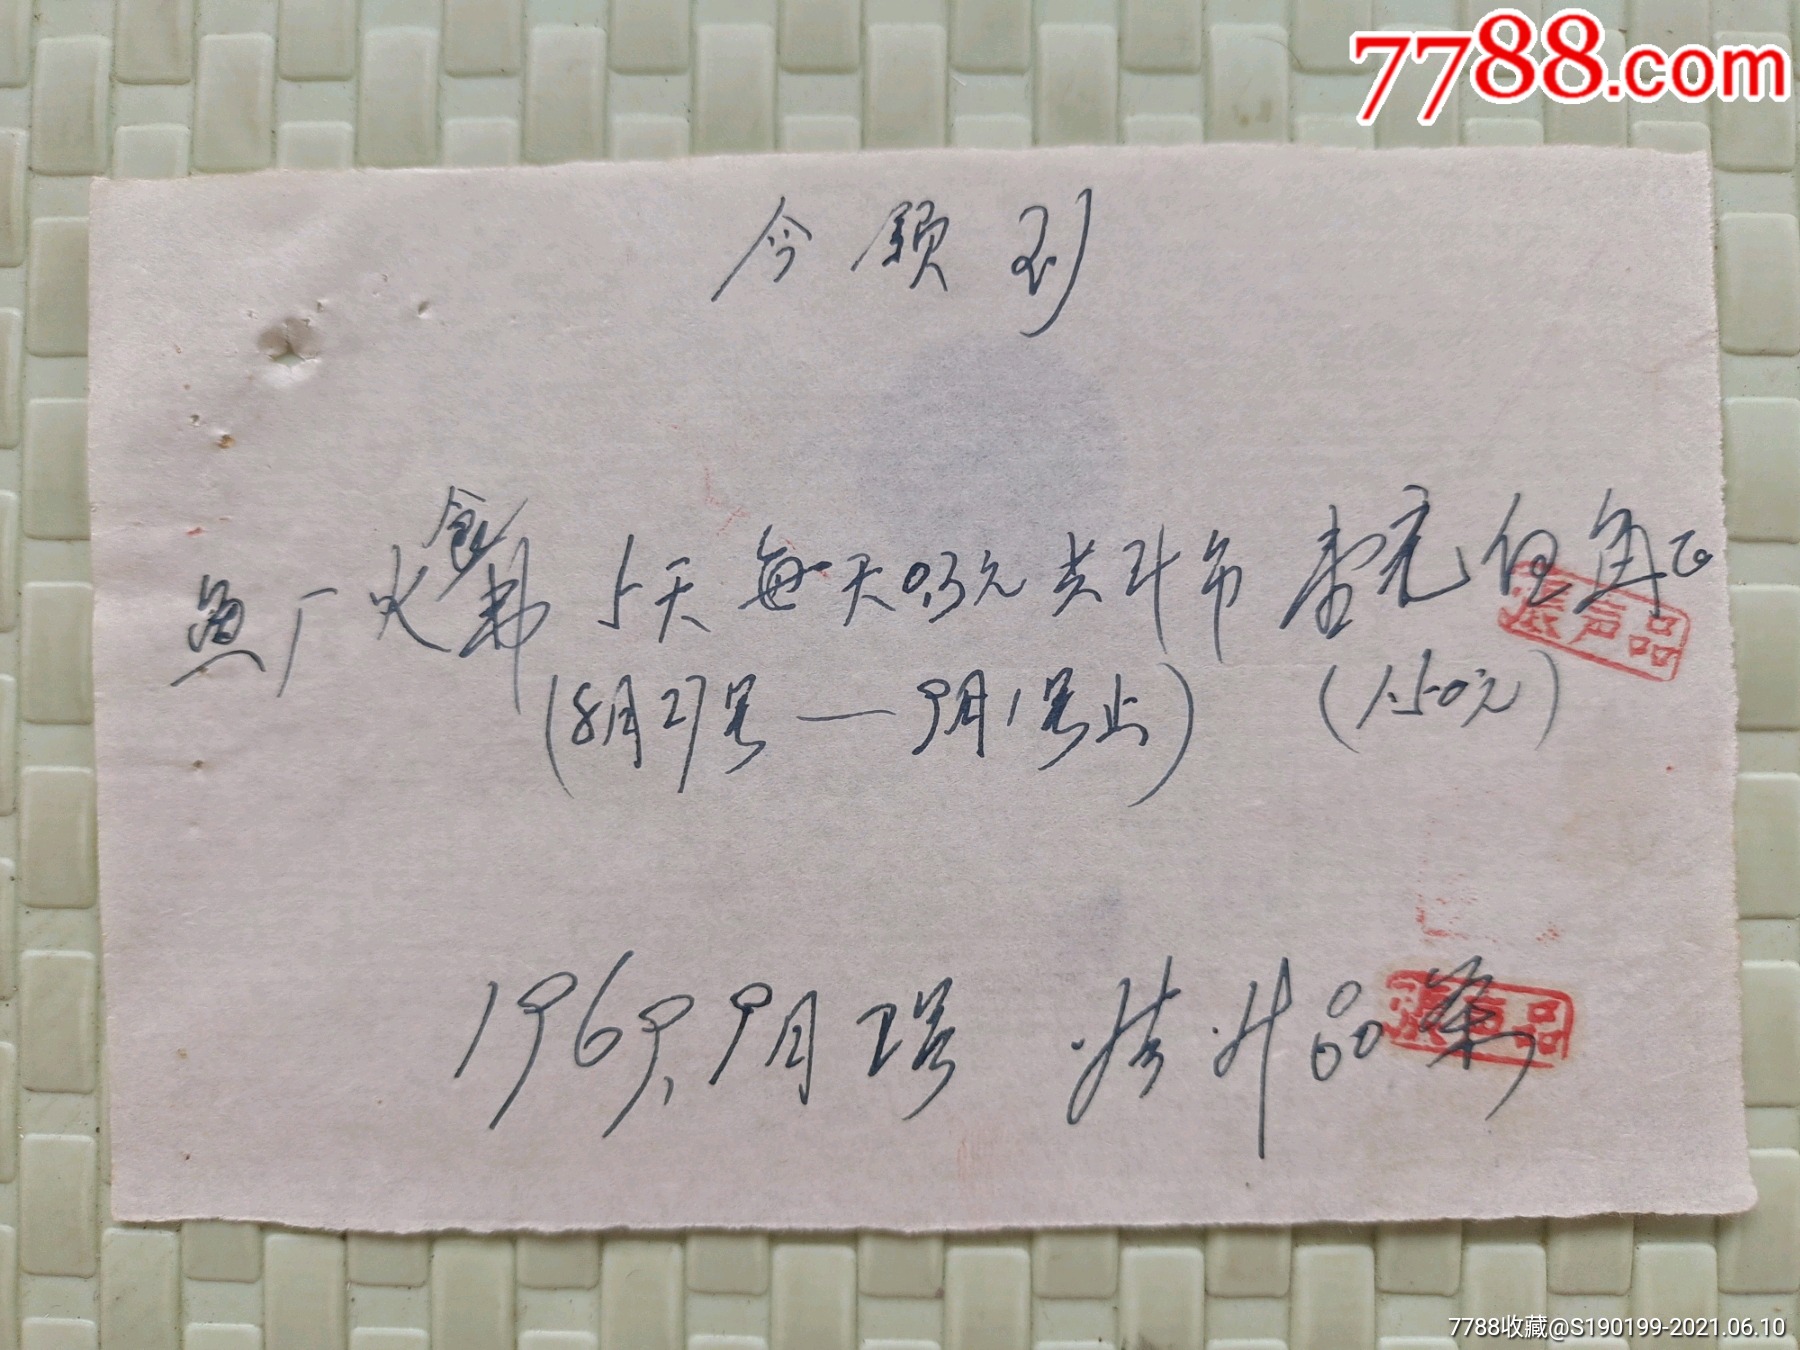 7788.com
今领到
鱼厂火食费5天每天0.3元共计币壹元伍角正
張声品
(8月27号——9月1号止) (1.50元)
1969.9月2号 张升品条
張声品
7788收藏@S190199-2021.06.10